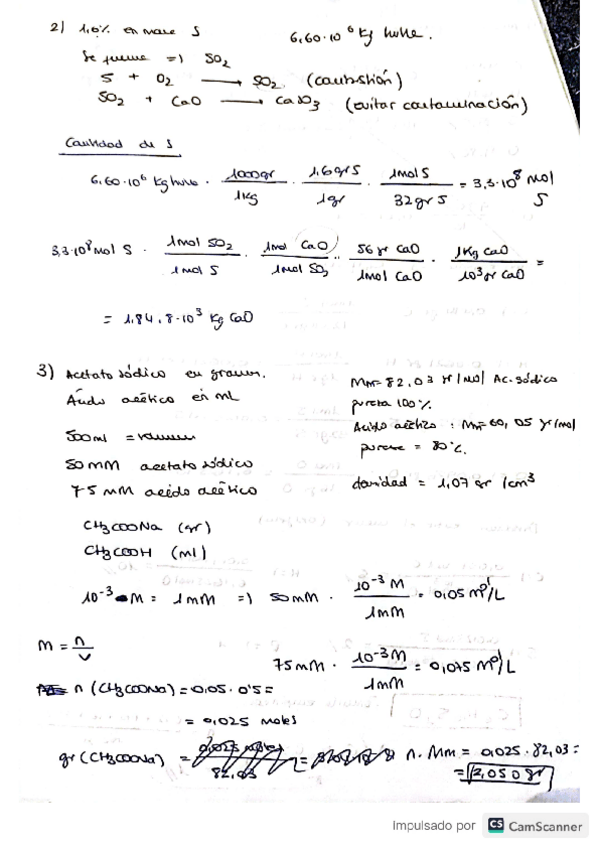 2) 1,6% en masa S 6,60·10⁶ Kg hulla.
Se quema => SO₂
S + O₂ → SO₂ (combustión)
SO₂ + CaO → CaSO₃ (evitar contaminación)
Cantidad de S
6,60·10⁶ Kg hulla · 1000gr/1Kg · 1,6gr S/1gr · 1mol S/32gr S = 3,3·10⁸ mol S
3,3·10⁸ mol S · 1mol SO₂/1mol S · 1mol CaO/1mol SO₂ · 56 gr CaO/1mol CaO · 1Kg CaO/10³ gr CaO =
= 1,84.8·10³ Kg CaO
3) Acetato sódico en gramos. Mm=82,03 gr/mol Ac. sódico
Ácido acético en ml pureza 100%
500ml = volumen Acido acético : Mm=60,05 gr/mol
50mM acetato sódico pureza = 80%.
75mM acido acético densidad = 1,07 gr/cm³
CH₃COONa (gr)
CH₃COOH (ml)
10⁻³ M = 1mM => 50mM · 10⁻³ M/1mM = 0,05 mol/L
M = n/V 75mM · 10⁻³ M/1mM = 0,075 mol/L
n (CH₃COONa) = 0,05 · 0'5 =
= 0,025 moles
gr (CH₃COONa) = n · Mm = 0,025 · 82,03 =
= 2,050 gr
Impulsado por CS CamScanner